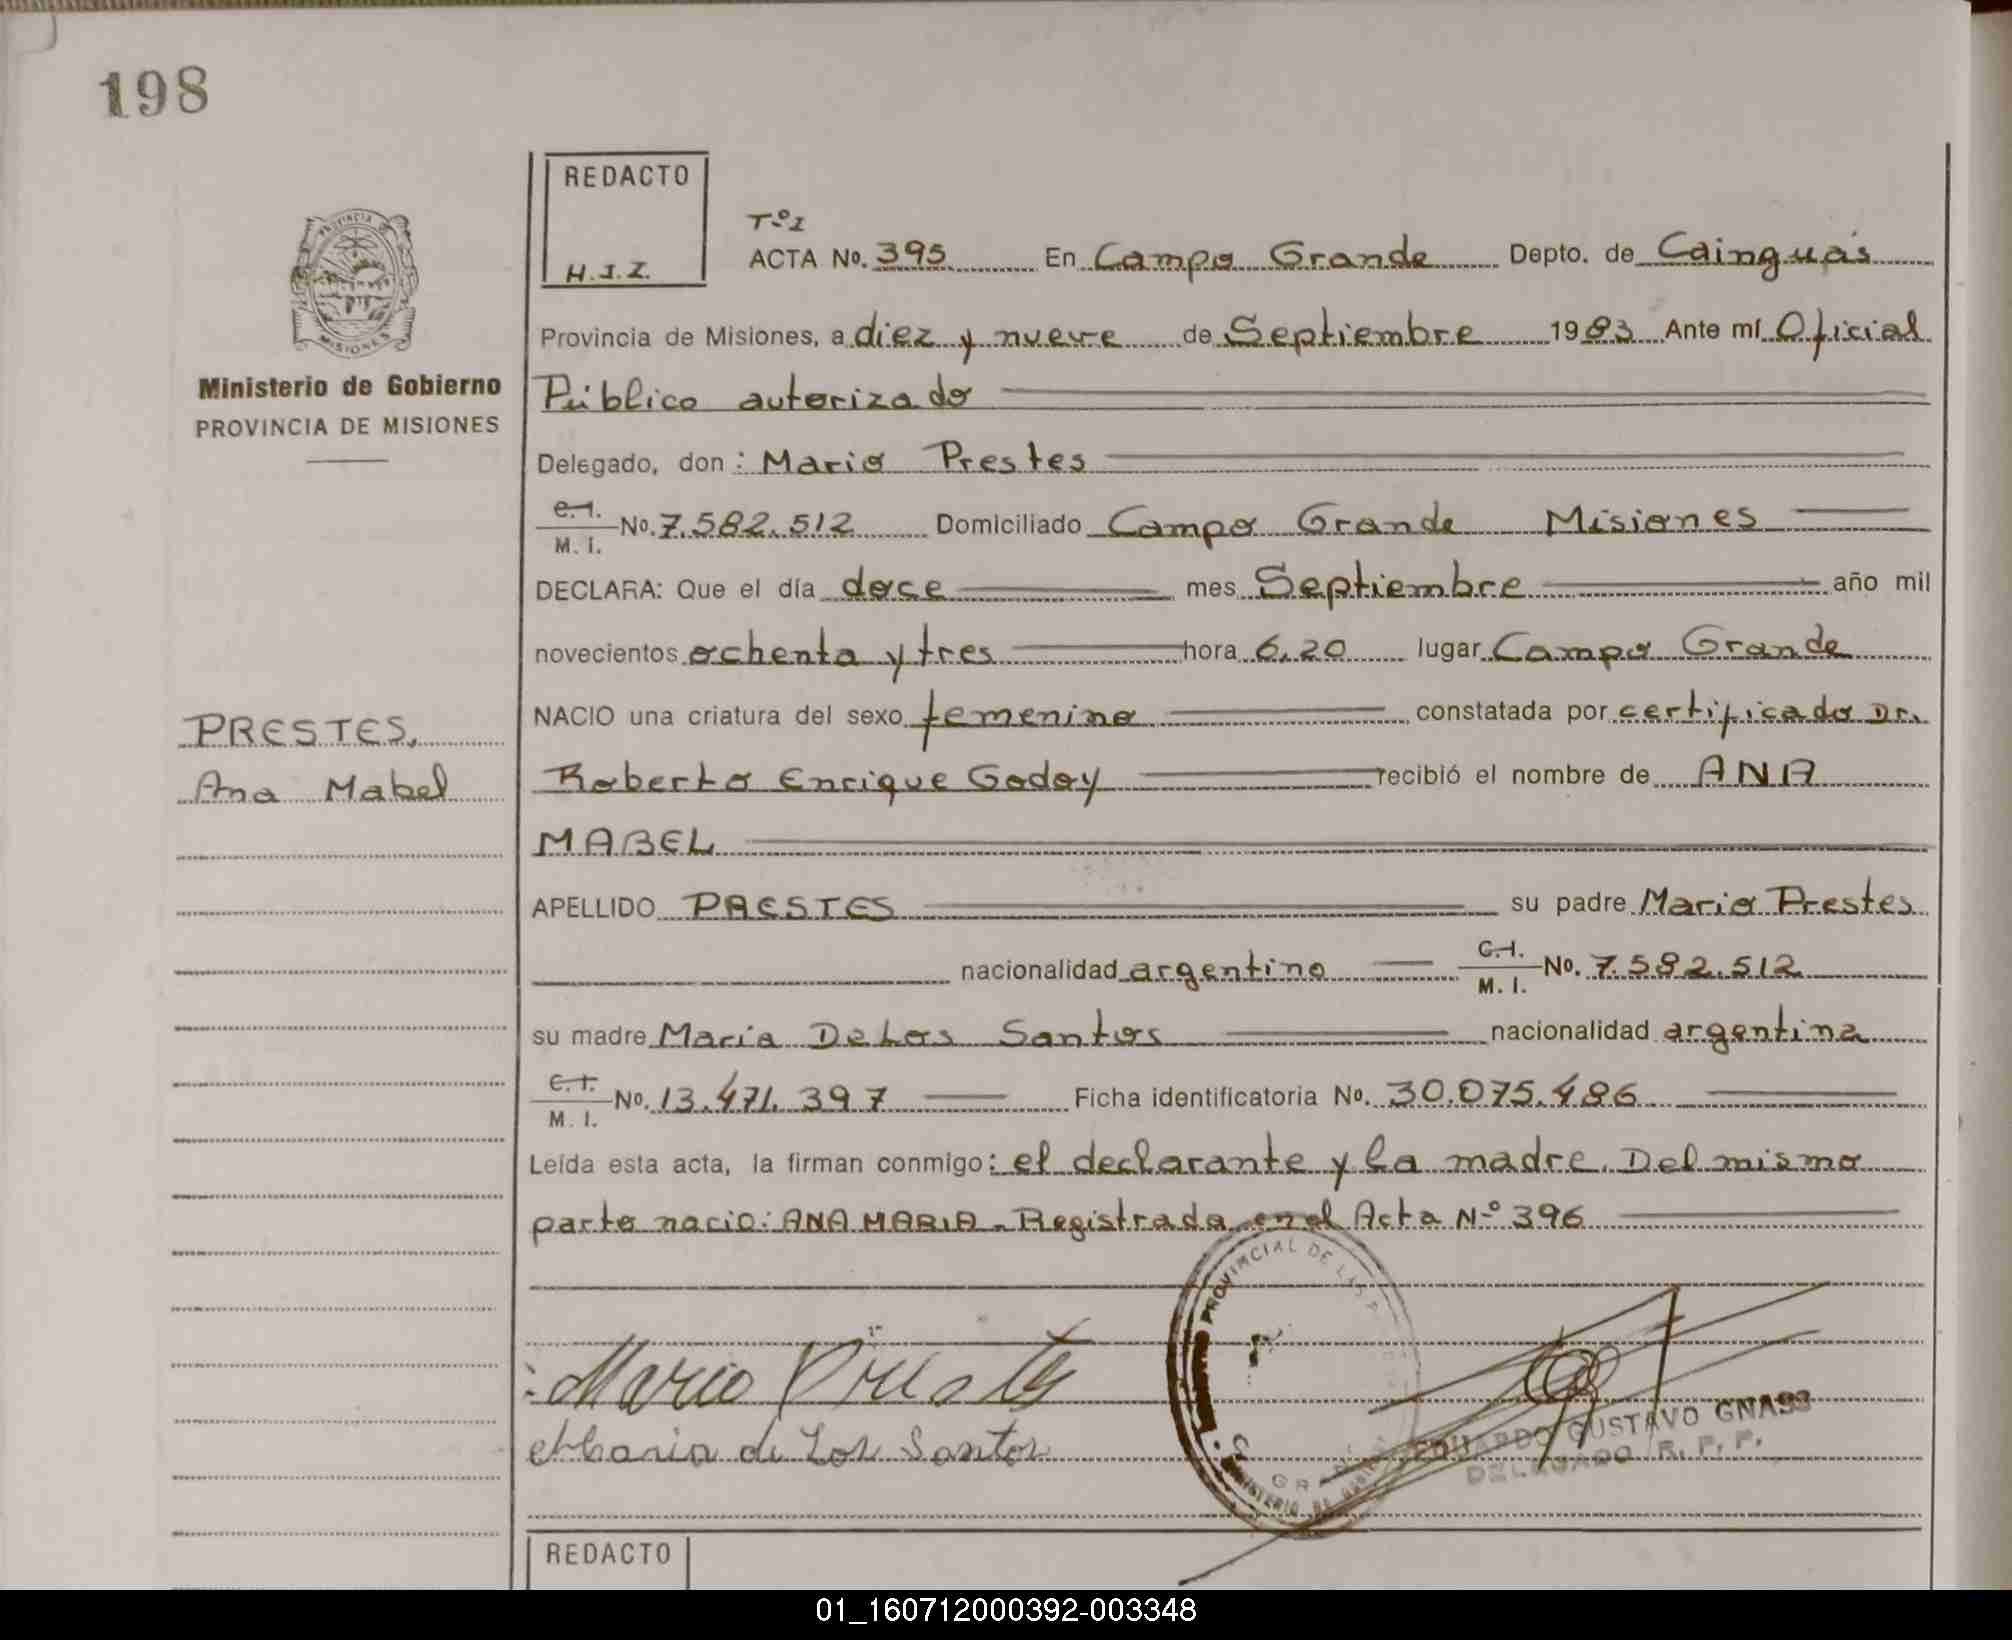 198
REDACTO
H.J.Z.
PROVINCIA
MISIONES
Ministerio de Gobierno
PROVINCIA DE MISIONES
Tº1
ACTA No. 395 En Campo Grande Depto. de Cainguás
Provincia de Misiones, a diez y nueve de Septiembre 1983 Ante mí Oficial
Público autorizado
Delegado, don: Mario Prestes
C.I. M. I. No. 7.582.512 Domiciliado Campo Grande Misiones
DECLARA: Que el día doce mes Septiembre año mil
novecientos ochenta y tres hora 6,20 lugar Campo Grande
NACIO una criatura del sexo femenino constatada por certificado Dr.
Roberto Enrique Godoy recibió el nombre de ANA
MABEL
PRESTES,
Ana Mabel
APELLIDO PRESTES su padre Mario Prestes
nacionalidad argentino C.I. M. I. No. 7.582.512
su madre María De Los Santos nacionalidad argentina
C.I. M. I. No. 13.471.397 Ficha identificatoria No. 30.075.486
Leída esta acta, la firman conmigo: el declarante y la madre. Del mismo
parto nacio: ANA MARIA - Registrada en el Acta Nº 396
PROVINCIAL DE LAS
Mario Prestes
Maria de Los Santos
EDUARDO GUSTAVO GNASS
DELEGADO R. P. P.
REDACTO
01_160712000392-003348